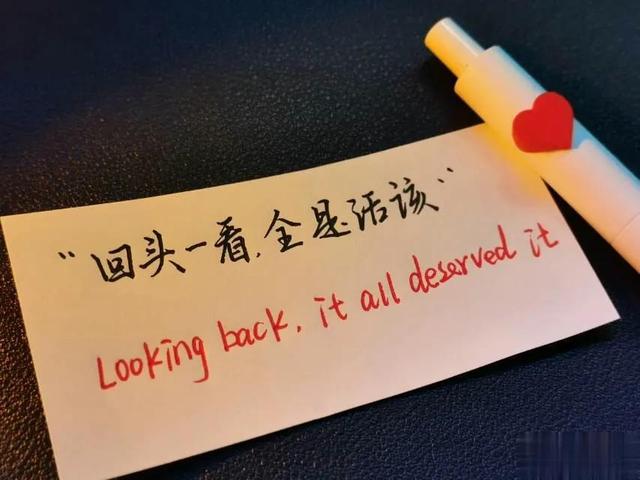 “回头一看,全是活该”
Looking back, it all deserved it